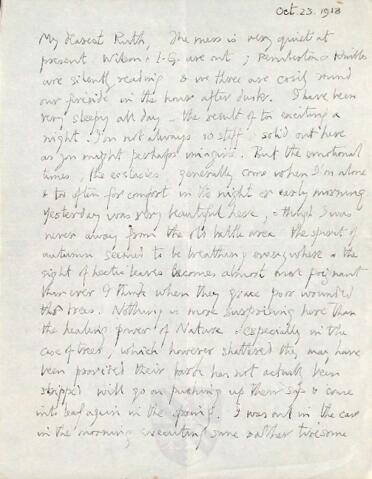 Oct. 23. 1918
My dearest Ruth, The mess is very quiet at
present Wilson & I.G. are out ; Pemberton &
are silently reading & we three are cosily round
our fireside in the hour after dusk. I have been
very sleepy all day – the result of too exciting a
night. I'm not always so stuff solid out here
as you might perhaps imagine. But the emotional
times, the ecstacies, generally come when I'm alone
& too often for comfort in the night or early morning.
Yesterday was very beautiful here, & though I was
never away from the old battle area the spirit of
autumn seemed to be breathing everywhere & the
sight of hectic leaves becomes almost more poignant
than ever I think when they grace poor wounded
trees. Nothing is more surprising here than
the healing power of Nature especially in the
case of trees, which however shattered they may have
been provided their bark has not actually been
stripped will go on pushing up their sap & come
into leaf again in the spring. I was out in the car
in the morning executing some rather tiresome